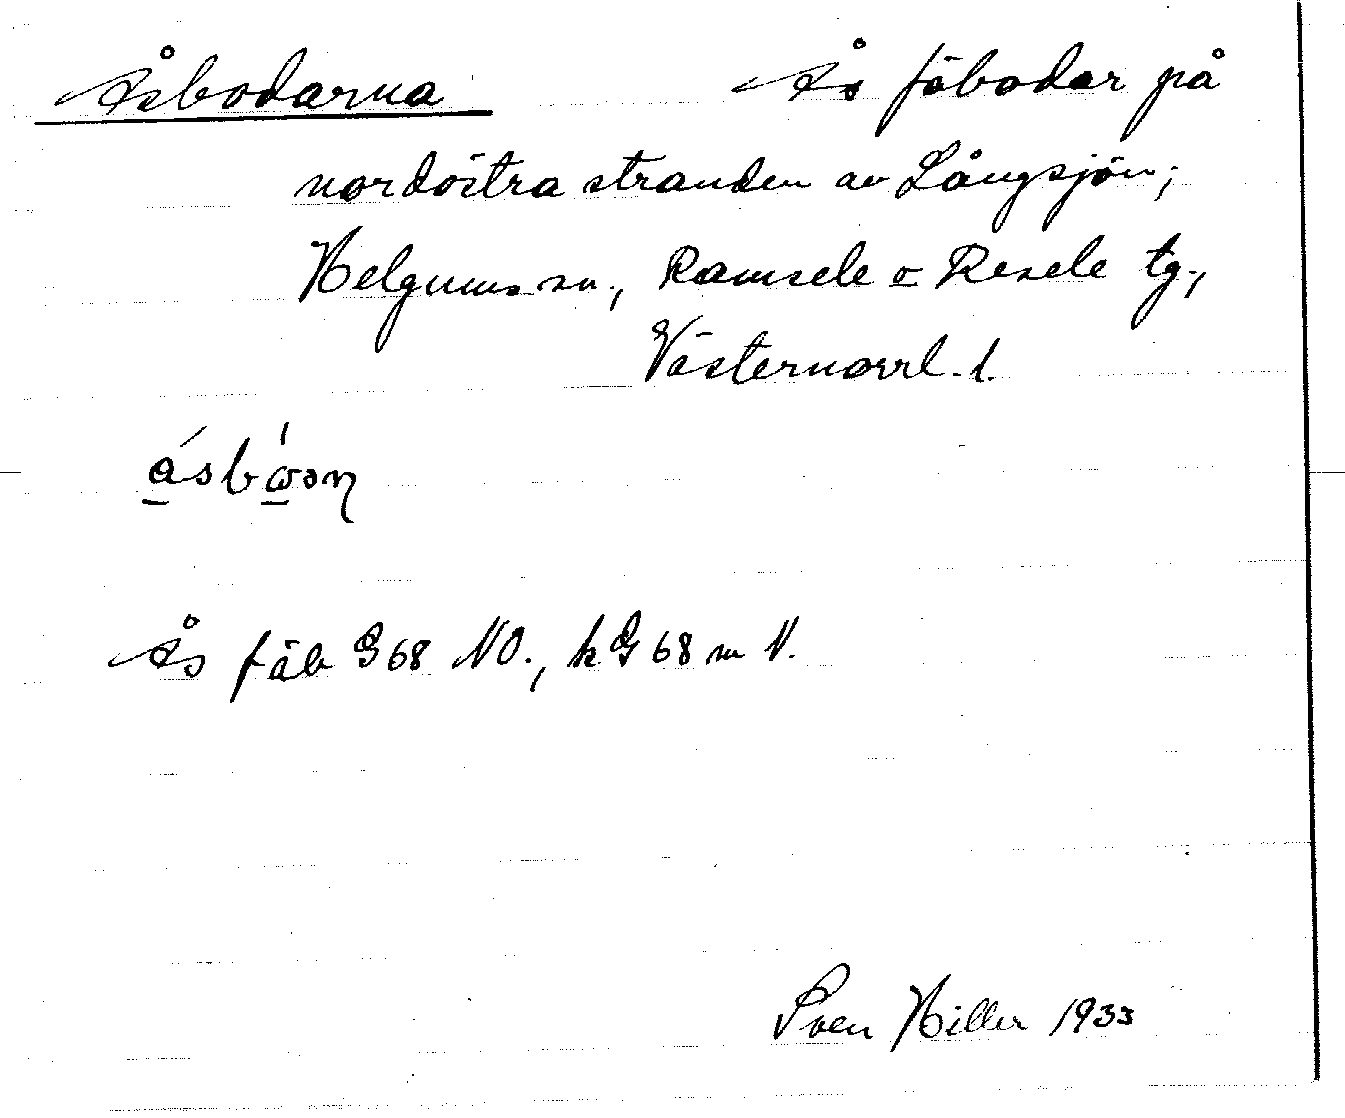 Åsbodarna Ås fäbodar på
nordöstra stranden av Långsjön;
Helgums sn., Ramsele o Resele tg.,
Västernorrl. l.
Ås fäb G68 NO., k G 68 m N.
Sven Hiller 1933